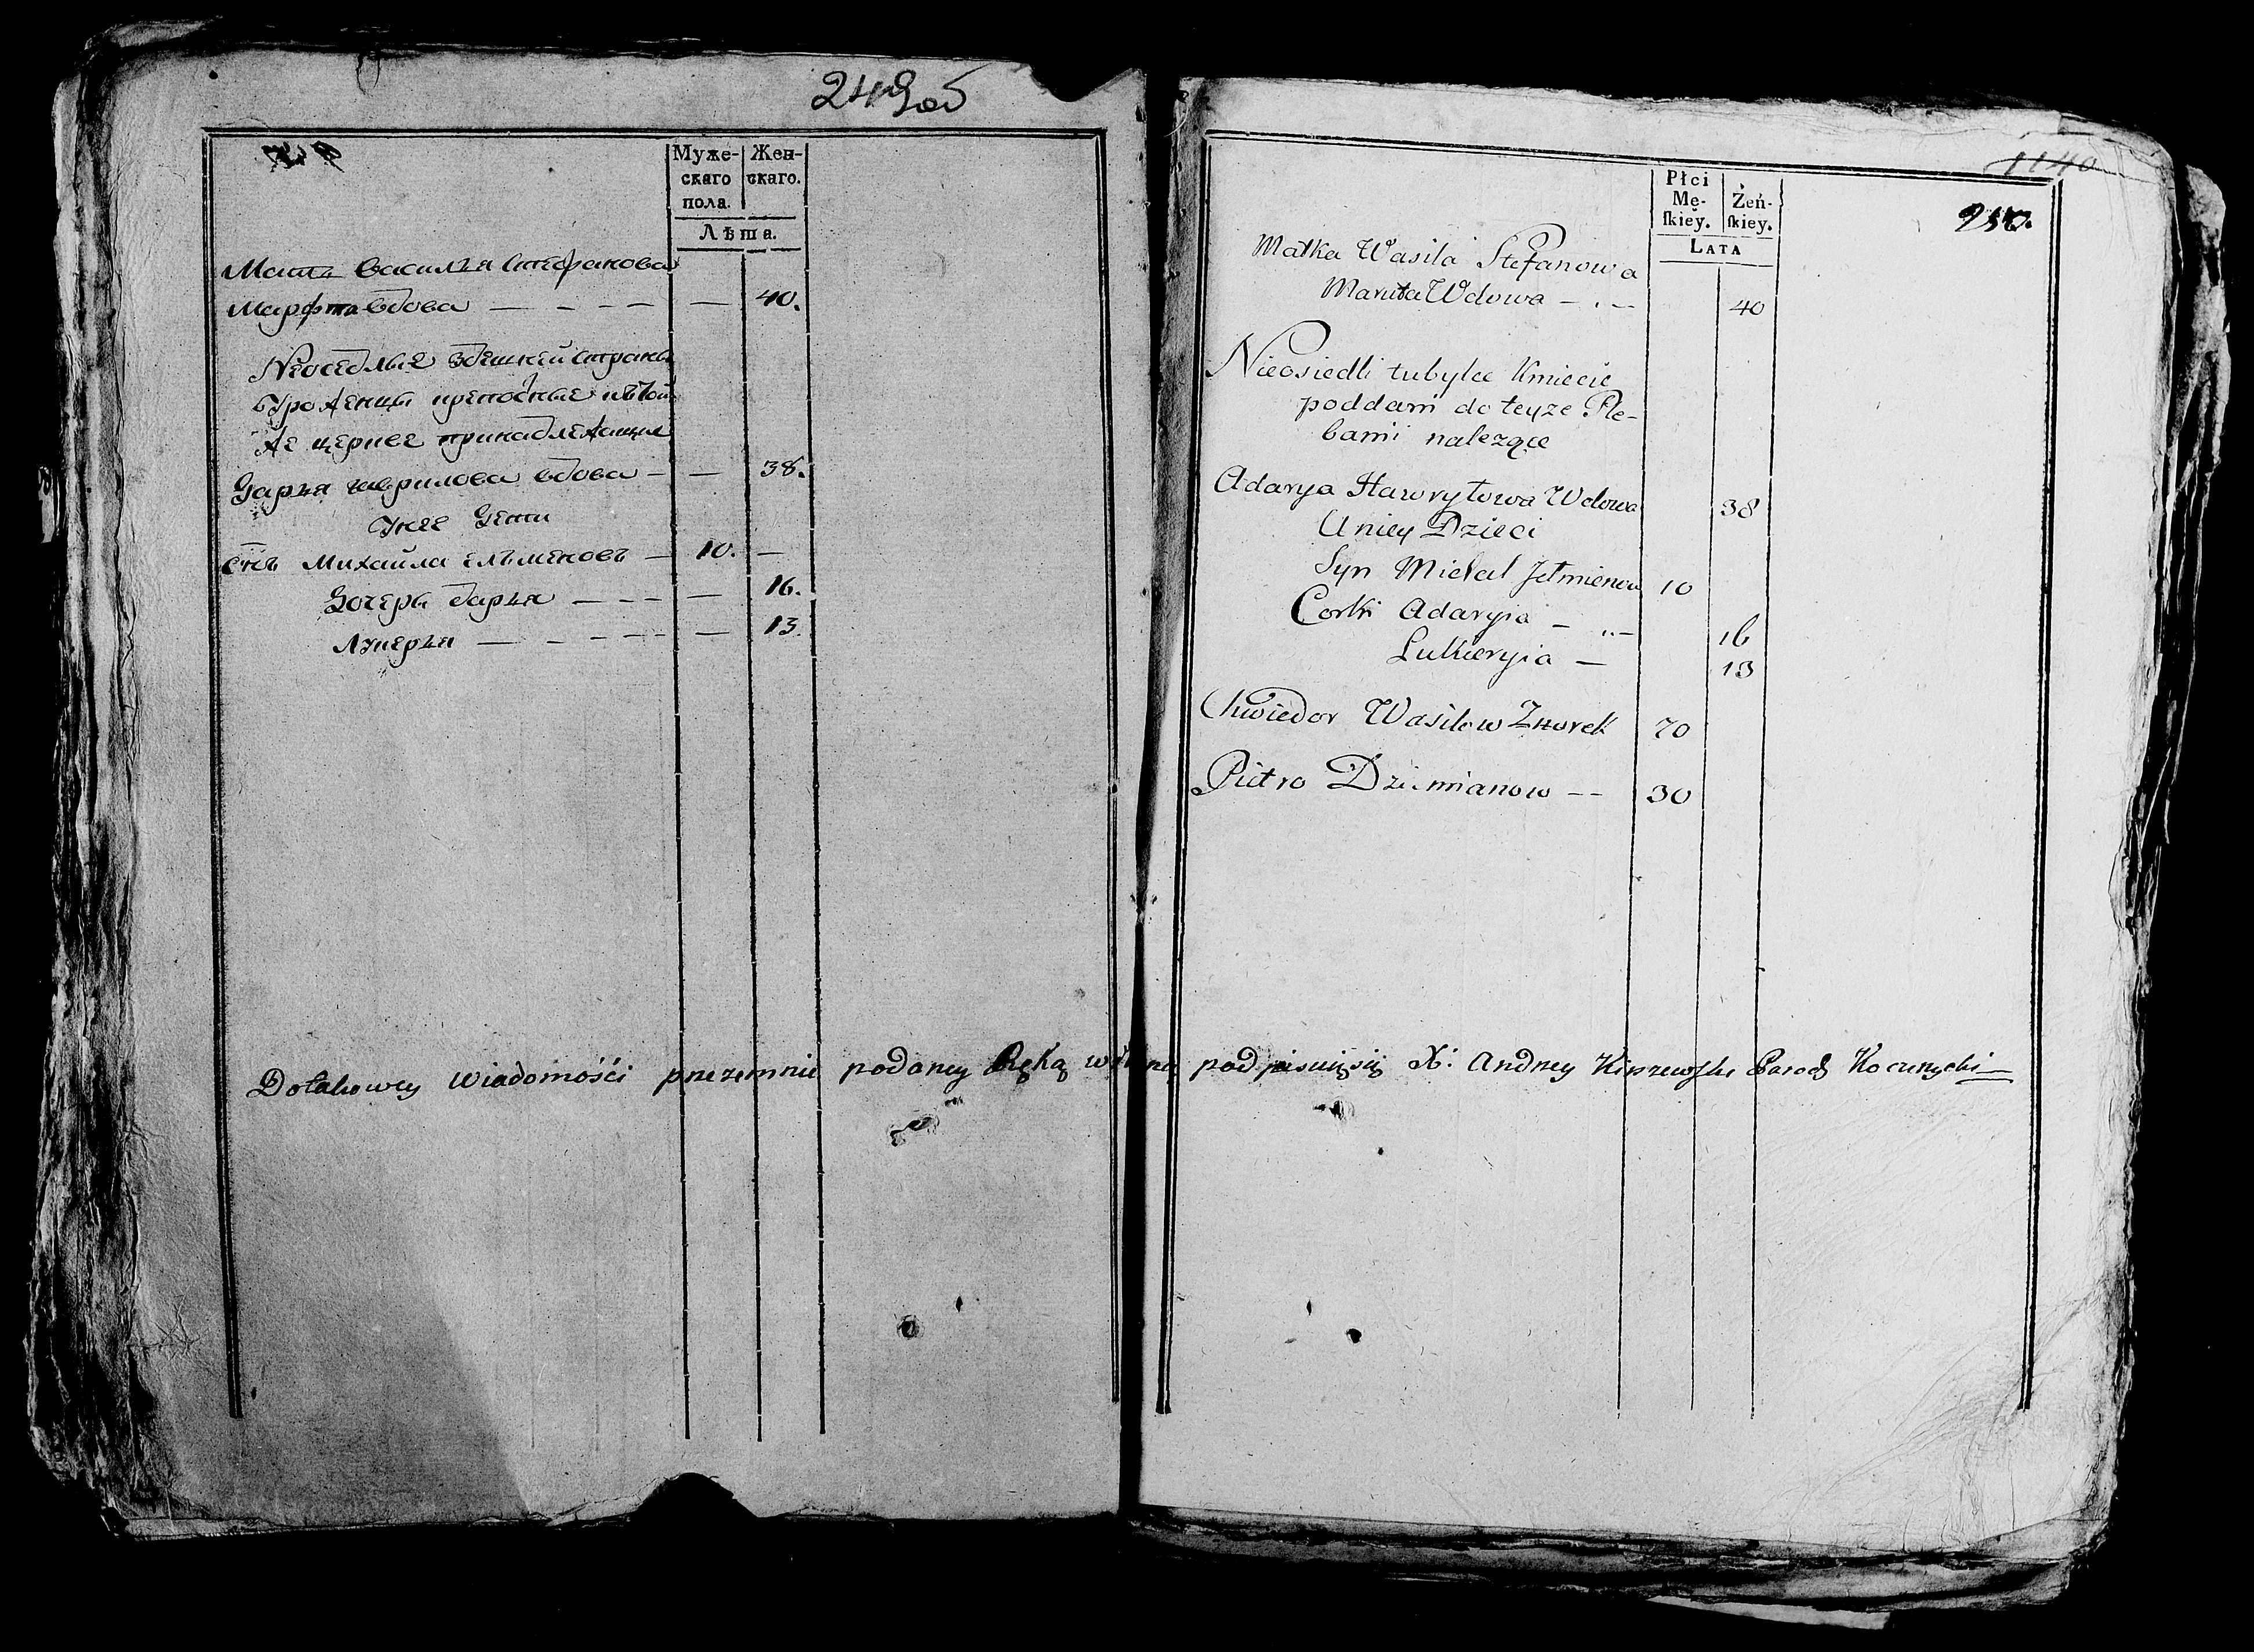 249 об
Муже-
скаго
пола.
Жен-
скаго.
Лѣта.
Мать Василья Стефанова
Марфа вдова — — — — — 40.
Неоседлые здешней страны
Уроженцы крепосные к той
же церкве принадлежащия
Дарья гаврилова вдова — — 38.
У нее Дети
Снъ Михайла ельменовъ — 10. —
Дочерь дарья — — — — 16.
Лукерья — — — — — 13.
1140
250.
Płci
Mę-
ſkiey.
Żeń-
ſkiey.
LATA
Matka Wasila Stefanowa
Wdowa — . — 40
Nieosiedli tubylce Kmiecie
poddani do teyze Ple-
banii nalezące
Adarya Hawryłowa Wdowa 38
Uniey Dzieci
Syn Michał Jełmienow 10
Corki Adaryia — .. — 16
Lukieryia — 13
Chwiedor Wasilow 70
Pietro Dziemianow — — 30
Dotakowey wiadomości przezemnie podaney Ręką własną podpisuięsię X: Andrzey Paroch